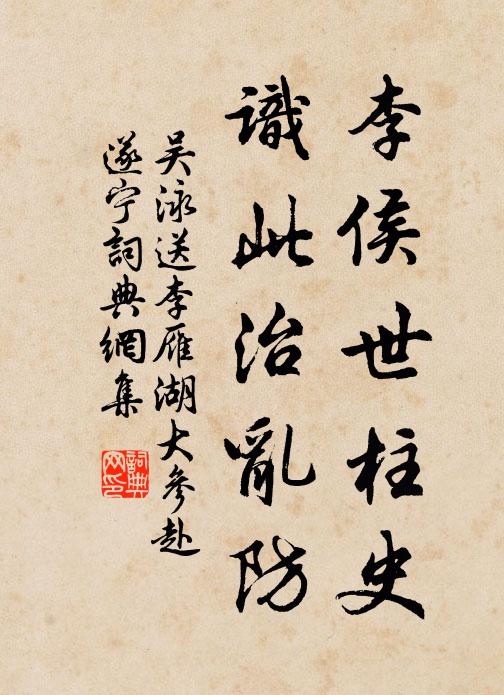 李侯世柱史
識此治亂防
吴泳送李雁湖大參赴
遂宁詞典網集
詞典网印